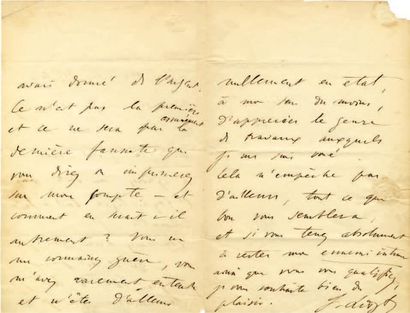 avais donné de l'argent.
Ce n'est pas la première
assurément
et ce ne sera pas la
dernière fausseté que
vous direz ou imprimerez
sur mon compte – et
comment en serait-il
autrement? Vous ne
me connaissez guère, vous
m'avez rarement entendu
et n'êtes d'ailleurs
nullement en état,
à mon sens du moins,
d'apprécier le genre
de travaux auxquels
je me suis voué.
Cela n'empêche pas
d'ailleurs, tout ce que
bon vous semblera,
et si vous tenez absolument
à rester mon ennemi intime
ainsi que vous vous qualifiez,
je vous souhaite bien du
plaisir.
F. Liszt